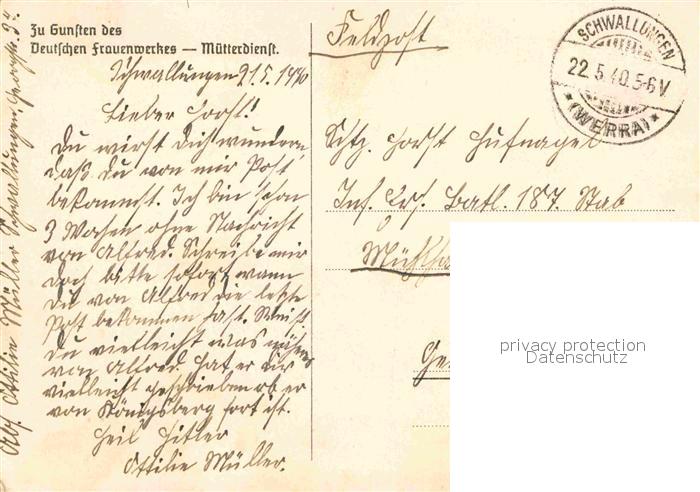 Zu Gunsten des
Deutschen Frauenwerkes — Mütterdienst.
Feldpost
SCHWALLUNGEN
22.5.40.5-6V.
(WERRA)
Schwallungen 21.5.1940
Lieber Horst!
Du wirst Dich wundern
daß Du von mir Post
bekommst. Ich bin schon
3 Wochen ohne Nachricht
von Alfred. Schreibe mir
doch bitte sofort, wann
Du von Alfred die letzte
Post bekommen hast. Weißt
Du vielleicht was näheres
von Alfred. Hat er Dir
vielleicht geschrieben ob er
von Königsberg fort ist.
Heil Hitler
Ottilie Müller.
Schtz. Horst Hufnagel
Inf. Ers. Batl. 187. Stab
Abs. Ottilie Müller Schwallungen,
privacy protection
Datenschutz